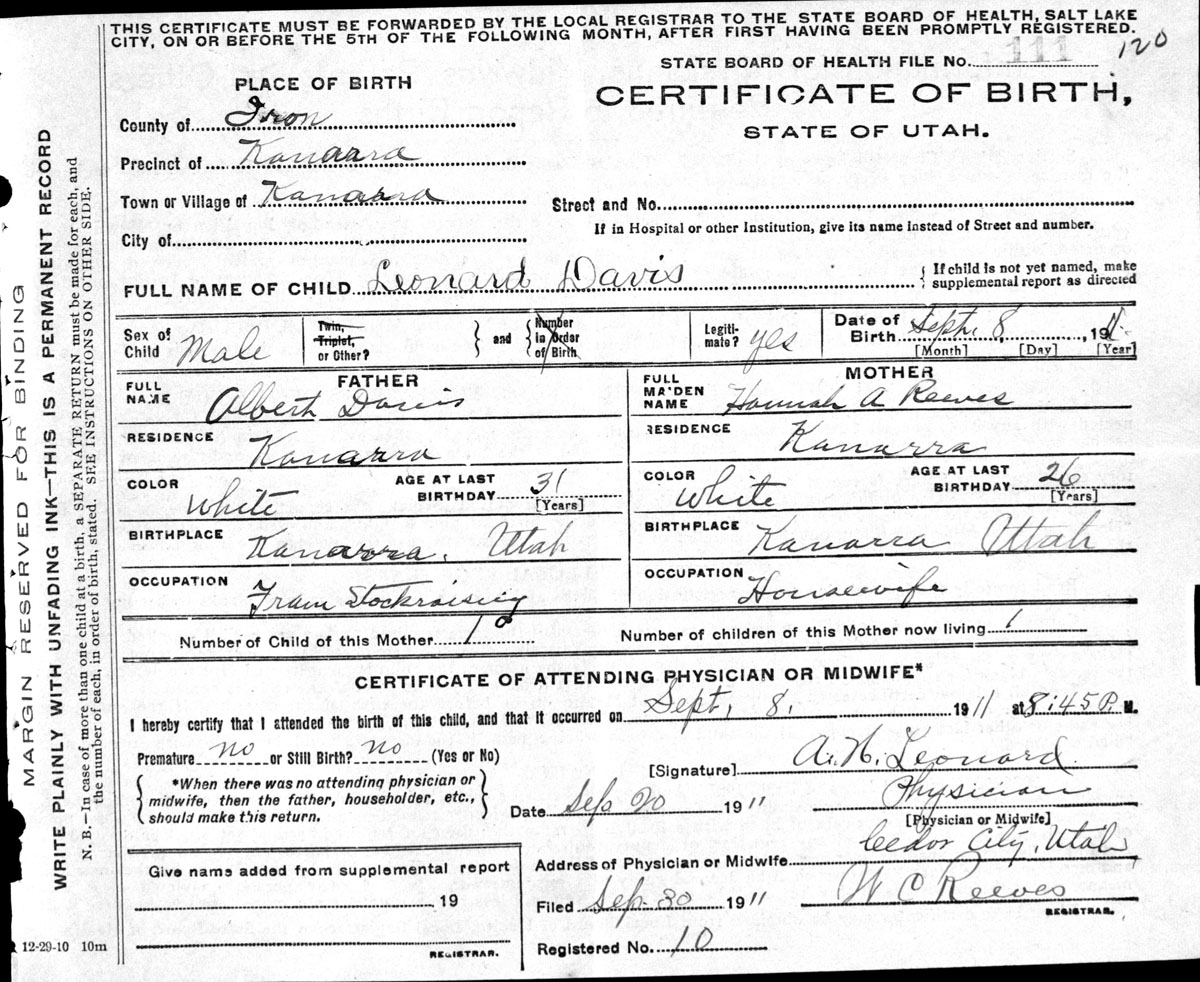 THIS CERTIFICATE MUST BE FORWARDED BY THE LOCAL REGISTRAR TO THE STATE BOARD OF HEALTH, SALT LAKE
CITY, ON OR BEFORE THE 5TH OF THE FOLLOWING MONTH, AFTER FIRST HAVING BEEN PROMPTLY REGISTERED.
120
STATE BOARD OF HEALTH FILE No. 111
PLACE OF BIRTH
CERTIFICATE OF BIRTH,
STATE OF UTAH.
County of Iron
Precinct of Kanarra
Town or Village of Kanarra
Street and No.
City of
If in Hospital or other Institution, give its name instead of Street and number.
FULL NAME OF CHILD Leonard Davis
{ If child is not yet named, make
supplemental report as directed
Sex of Child Male
Twin, Triplet, or Other? } and { Number in Order of Birth
Legiti-mate? yes
Date of Birth Sept. 8, 1911
[Month] [Day] [Year]
FATHER
MOTHER
FULL NAME Albert Davis
FULL MAIDEN NAME Hannah A Reeves
RESIDENCE Kanarra
RESIDENCE Kanarra
COLOR White
AGE AT LAST BIRTHDAY 31 [Years]
COLOR White
AGE AT LAST BIRTHDAY 26 [Years]
BIRTHPLACE Kanarra, Utah
BIRTHPLACE Kanarra Utah
OCCUPATION Fram Stockraising
OCCUPATION Housewife
Number of Child of this Mother 1
Number of children of this Mother now living 1
CERTIFICATE OF ATTENDING PHYSICIAN OR MIDWIFE*
I hereby certify that I attended the birth of this child, and that it occurred on Sept. 8, 1911 at 8:45 P. M.
Premature no or Still Birth? no (Yes or No)
[Signature] A. N. Leonard
{ *When there was no attending physician or
midwife, then the father, householder, etc.,
should make this return. }
Date Sep 20 1911
Physician
[Physician or Midwife]
Address of Physician or Midwife Cedar City, Utah
Give name added from supplemental report
19
REGISTRAR.
Filed Sep. 30 1911
W C Reeves
REGISTRAR.
Registered No. 10
12-29-10 10m
MARGIN RESERVED FOR BINDING
WRITE PLAINLY WITH UNFADING INK—THIS IS A PERMANENT RECORD
N. B.—In case of more than one child at a birth, a SEPARATE RETURN must be made for each, and
the number of each, in order of birth, stated. SEE INSTRUCTIONS ON OTHER SIDE.